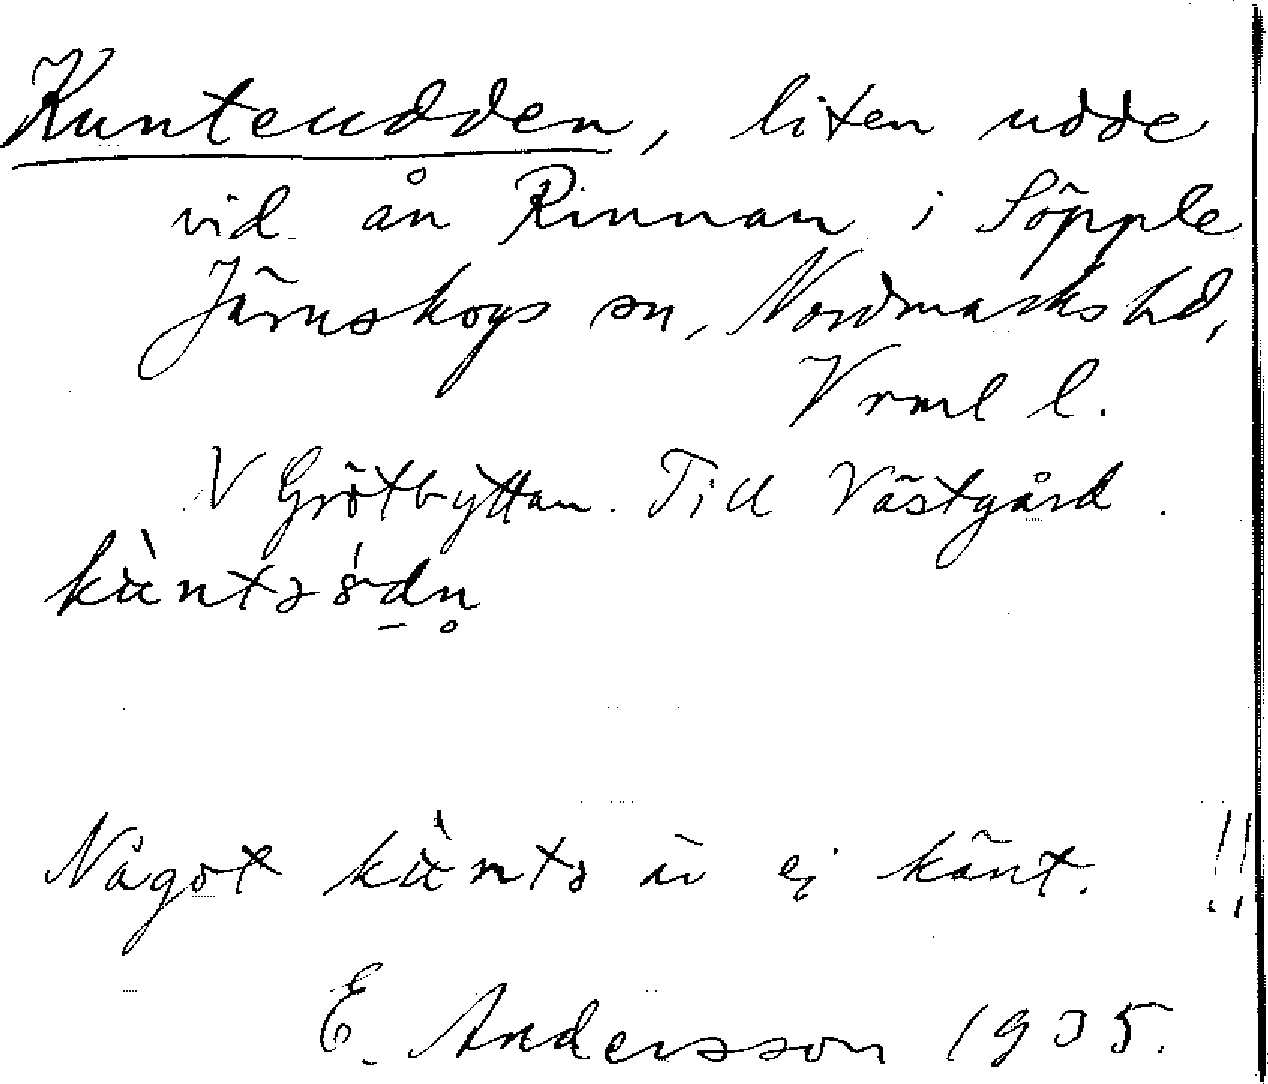 Kunteudden, liten udde
vid ån Rinnan i Söpple
Järnskogs sn, Nordmarks hd,
Vrml l.
N Grötbyttan. Till Västgård.
Något är ej känt. !!
E. Andersson 1935.